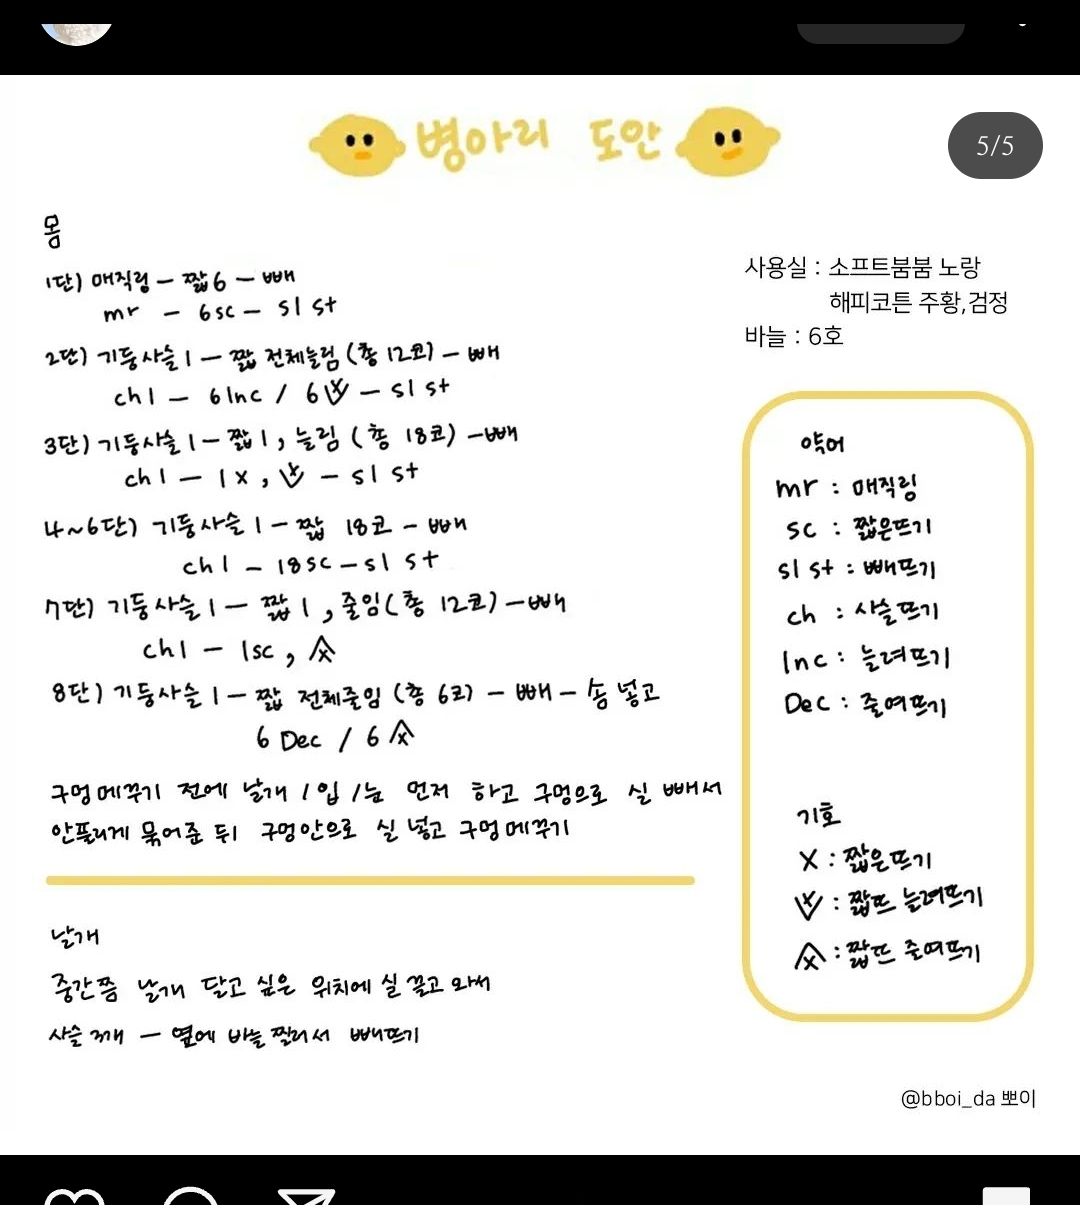 5/5
병아리 도안
몸
1단) 매직링 - 짧6 - 빼
mr - 6sc - sl st
2단) 기둥사슬 1 - 짧 전체늘림 (총 12코) - 빼
ch1 - 6Inc / 6 - sl st
3단) 기둥사슬 1 - 짧1, 늘림 (총 18코) - 빼
ch1 - 1x, - sl st
4~6단) 기둥사슬 1 - 짧 18코 - 빼
ch1 - 18sc - sl st
7단) 기둥사슬 1 - 짧1, 줄임(총 12코) - 빼
ch1 - 1sc,
8단) 기둥사슬 1 - 짧 전체줄임 (총 6코) - 빼 - 솜 넣고
6 Dec / 6
구멍메꾸기 전에 날개 / 입 / 눈 먼저 하고 구멍으로 실 빼서
안풀리게 묶어준 뒤 구멍안으로 실 넣고 구멍메꾸기
날개
중간쯤 날개 달고 싶은 위치에 실 끌고 와서
사슬 3개 - 옆에 바늘 찔러서 빼뜨기
사용실 : 소프트붐붐 노랑
해피코튼 주황,검정
바늘 : 6호
약어
mr : 매직링
sc : 짧은뜨기
sl st : 빼뜨기
ch : 사슬뜨기
Inc : 늘려뜨기
Dec : 줄여뜨기
기호
X : 짧은뜨기
: 짧뜨 늘려뜨기
: 짧뜨 줄여뜨기
@bboi_da 뽀이